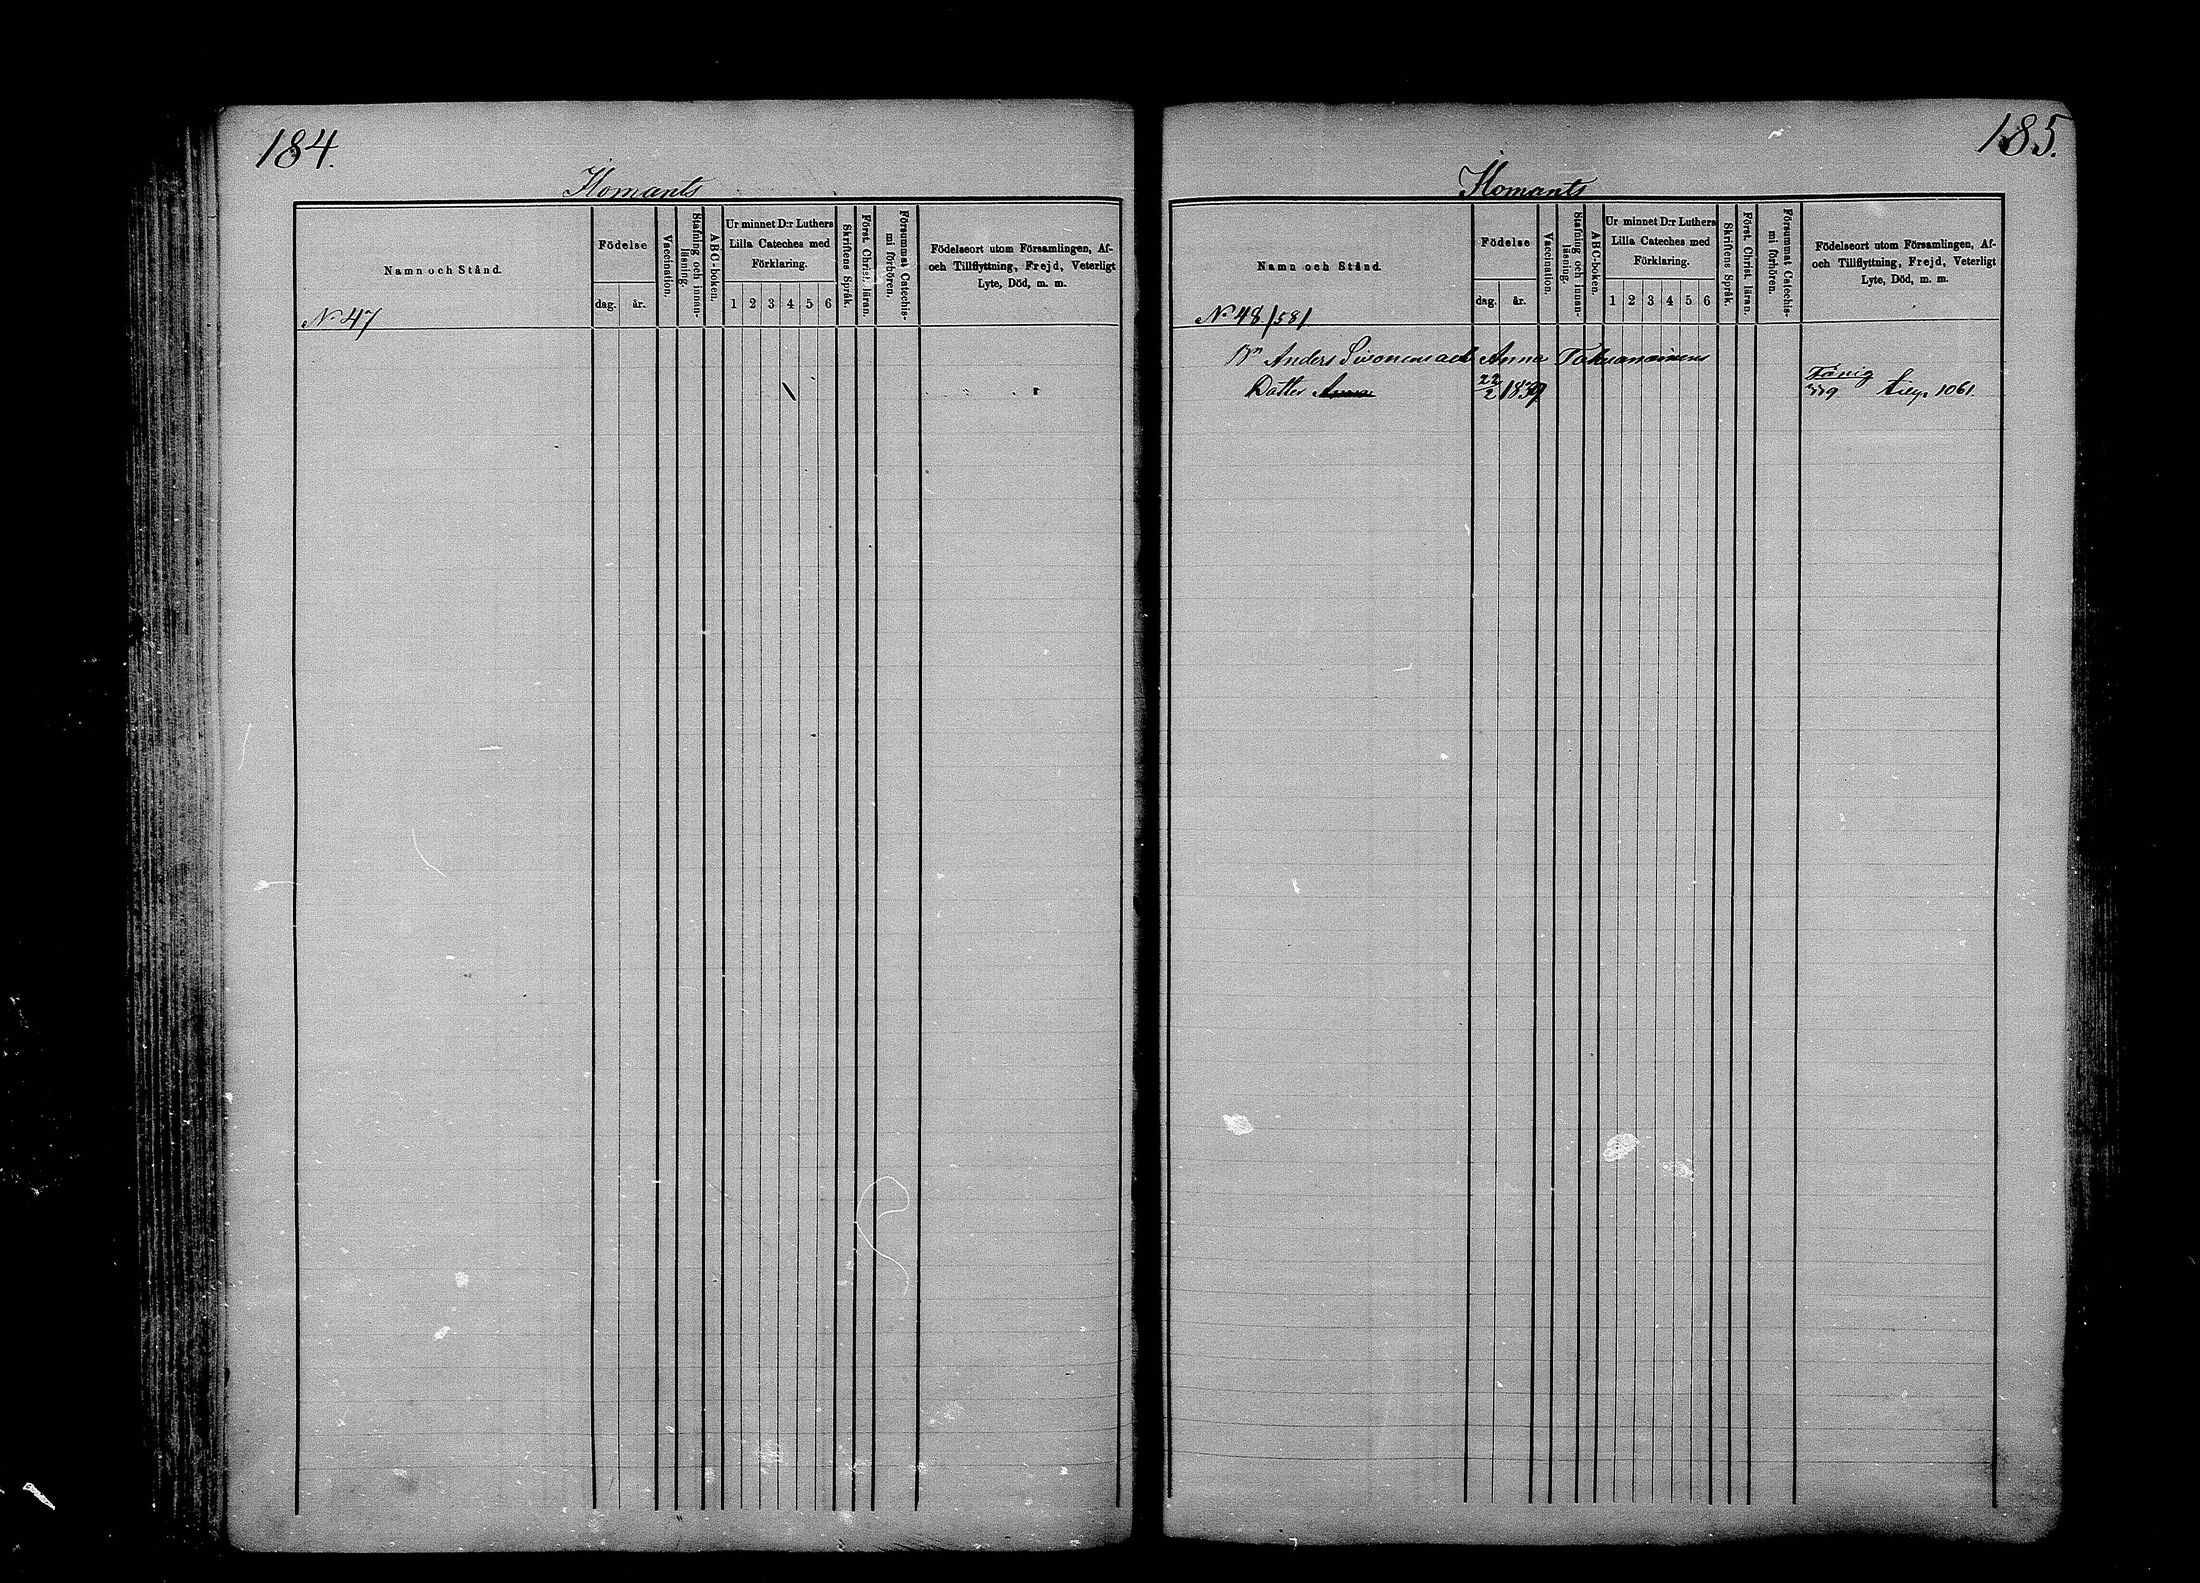 184.
Ilomants
Namn och Stånd.
Födelse
dag. år.
Vaccination.
Stafning och innan-
läsning.
ABC-boken.
Ur minnet D:r Luthers
Lilla Cateches med
Förklaring.
1 2 3 4 5 6
Skriftens Språk.
Först. Christ. läran.
Försummat Catechis-
mi förhören.
Födelseort utom Församlingen, Af-
och Tillflyttning, Frejd, Veterligt
Lyte, Död, m. m.
N:o 47
185.
Ilomants
Namn och Stånd.
Födelse
dag. år.
Vaccination.
Stafning och innan-
läsning.
ABC-boken.
Ur minnet D:r Luthers
Lilla Cateches med
Förklaring.
1 2 3 4 5 6
Skriftens Språk.
Först. Christ. läran.
Försummat Catechis-
mi förhören.
Födelseort utom Församlingen, Af-
och Tillflyttning, Frejd, Veterligt
Lyte, Död, m. m.
N:o 48 /58/
Bn Anders Anna
Dotter Anna 22/2 1839 1061.